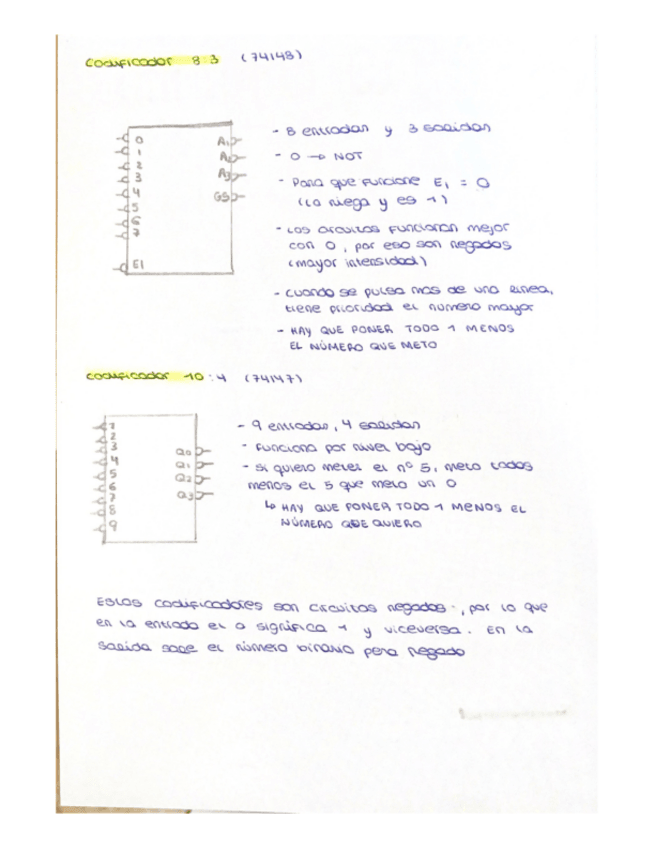 Codificador 8:3 (74148)
0
1
2
3
4
5
6
7
EI
GS
- 8 entradas y 3 salidas
- 0 → NOT
- Para que funcione E₁ = 0
(la niega y es 1)
- Los circuitos funcionan mejor
con 0, por eso son negados
(mayor intensidad)
- Cuando se pulsa mas de una linea,
tiene prioridad el número mayor
- HAY QUE PONER TODO 1 MENOS
EL NÚMERO QUE METO
Codificador 10:4 (74147)
1
2
3
4
5
6
7
8
9
Q0
Q1
Q2
Q3
- 9 entradas, 4 salidas
- Funciona por nivel bajo
- Si quiero meter el nº 5, meto todos
menos el 5 que meto un 0
↳ HAY QUE PONER TODO 1 MENOS EL
NÚMERO QUE QUIERO
Estos codificadores son circuitos negados, por lo que
en la entrada el 0 significa 1 y viceversa. En la
salida sale el número binario pero negado